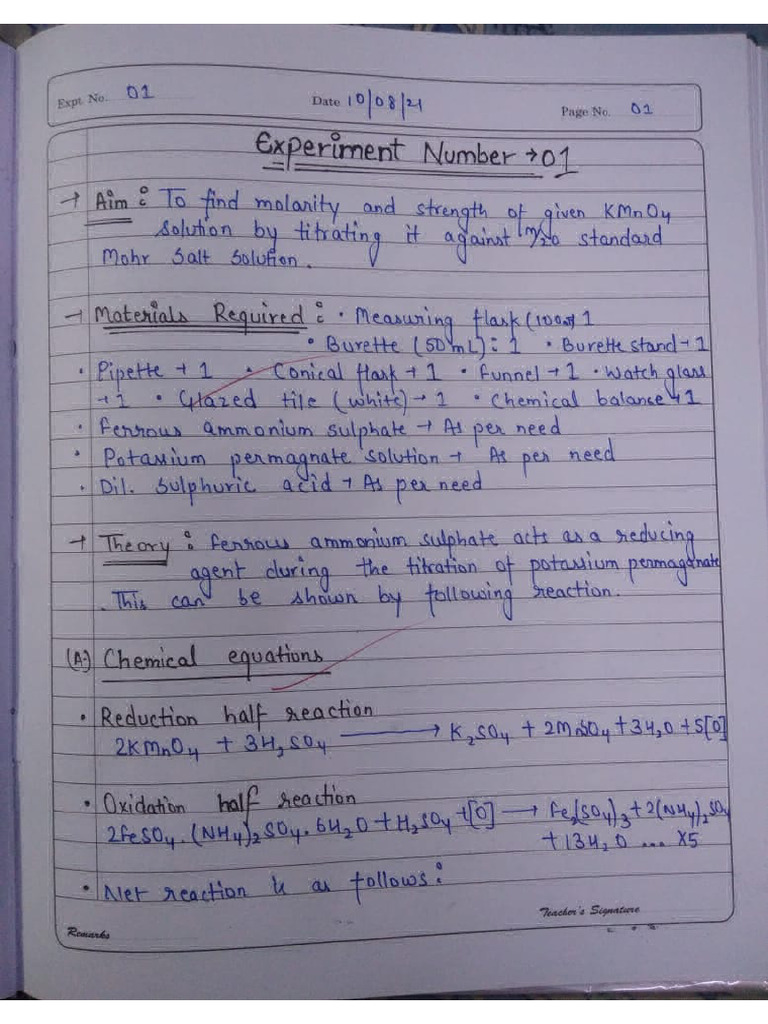 Expt. No. 01
Date 10/08/21
Page No. 01
Experiment Number → 01
→ Aim : To find molarity and strength of given KMnO4
solution by titrating it against M/20 standard
Mohr Salt Solution.
→ Materials Required : • Measuring flask (100
• Burette (50 mL) : 1 • Burette stand → 1
• Pipette → 1 • Conical flask → 1 • Funnel → 1 • Watch glass
→ 1 • Glazed tile (white) → 1 • Chemical balance → 1
• Ferrous ammonium sulphate → As per need
• Potassium permagnate solution → As per need
• Dil. Sulphuric acid → As per need
→ Theory : Ferrous ammonium sulphate acts as a reducing
agent during the titration of potassium permagnate
. This can be shown by following reaction.
(A) Chemical equations
• Reduction half reaction
2KMnO4 + 3H2SO4 ⟶ K2SO4 + 2MnSO4 + 3H2O + 5[O]
• Oxidation half reaction
2FeSO4.(NH4)2SO4.6H2O + H2SO4 + [O] ⟶ Fe2(SO4)3 + 2(NH4)2SO4
+ 13H2O ... X5
• Net reaction is as follows :
Teacher's Signature
Remarks